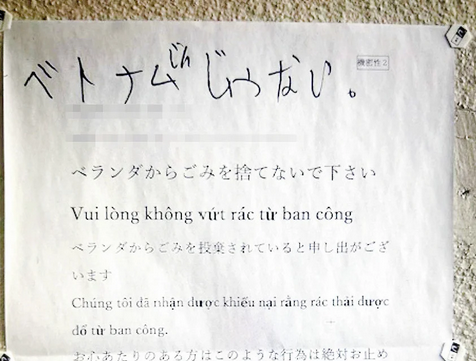 ベトナムじんじゃない。
機密性2
ベランダからごみを捨てないで下さい
Vui lòng không vứt rác từ ban công
ベランダからごみを投棄されていると申し出がござ
います
Chúng tôi đã nhận được khiếu nại rằng rác thải được
đổ từ ban công.
お心あたりのある方はこのような行為は絶対お止め